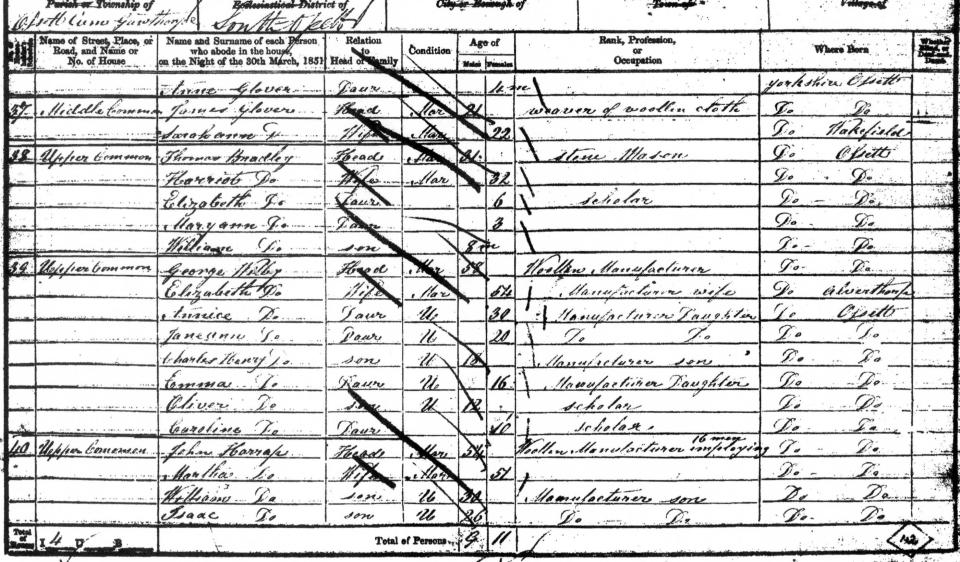 Parish or Township of Ecclesiastical District of City or Borough of Town of Village of
Ossett cum Gawthorpe South Ossett
Name of Street, Place, or Road, and Name or No. of House | Name and Surname of each Person who abode in the house, on the Night of the 30th March, 1851 | Relation to Head of Family | Condition | Age of Males Females | Rank, Profession, or Occupation | Where Born
Anne Glover Daur 4 m Yorkshire Ossett
37 Middle Common James Glover Head Mar 21 weaver of woollen cloth Do Do
Sarah ann Do Wife Mar 22 Do Wakefield
38 Upper Common Thomas Bradley Head Mar 31 stone Mason Do Ossett
Harriot Do Wife Mar 32 Do Do
Elizabeth Do Daur 6 scholar Do Do
Maryann Do Daur 3 Do Do
William Do son 8 m Do Do
39 Upper Common George Wilby Head Mar 58 Woollen Manufacturer Do Do
Elizabeth Do Wife Mar 54 Manufacturer wife Do Alverthorpe
Annice Do Daur U 30 Manufacturer Daughter Do Ossett
Jane ann Do Daur U 20 Do Do Do Do
Charles Henry Do son U 18 Manufacturer son Do Do
Emma Do Daur U 16 Manufacturer Daughter Do Do
Oliver Do son U 12 scholar Do Do
Caroline Do Daur 10 scholar Do Do
40 Upper Common John Harrap Head Mar 54 Woollen Manufacturer employing 16 men Do Do
Martha Do Wife Mar 51 Do Do
William Do son U 30 Manufacturer son Do Do
Isaac Do son U 26 Do Do Do Do
Total of Houses I 4 U B Total of Persons 9 11